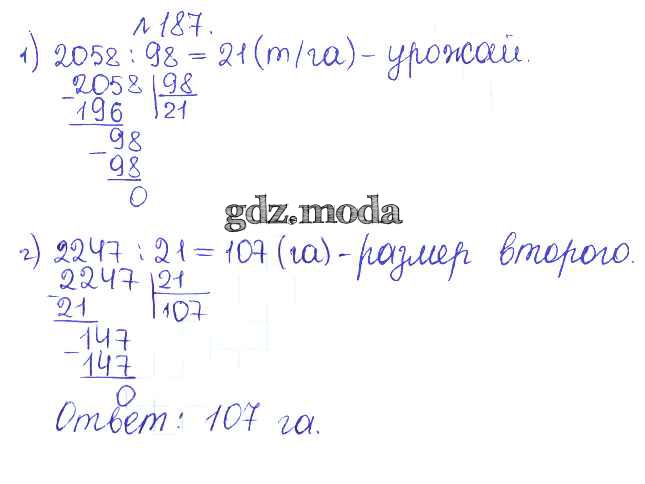 №187.
1) 2058 : 98 = 21 (т/га) – урожай.
- 2058 | 98
196 | 21
- 98
98
0
gdz.moda
2) 2247 : 21 = 107 (га) – размер второго.
- 2247 | 21
21 | 107
- 147
147
0
Ответ: 107 га.